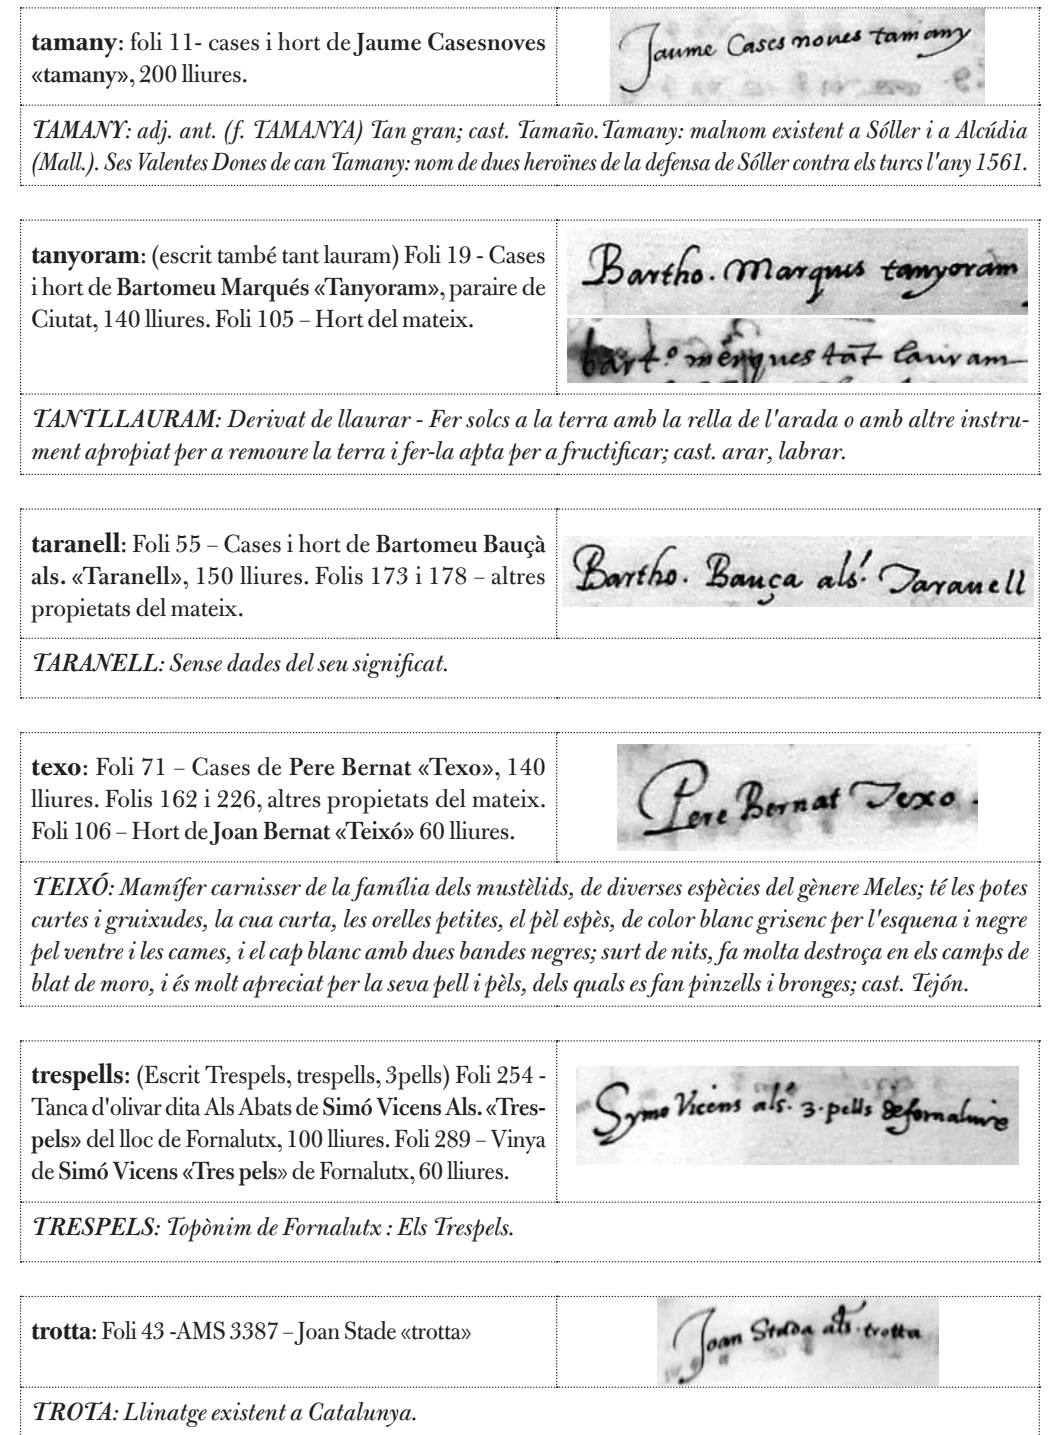 tamany: foli 11- cases i hort de Jaume Casesnoves
«tamany», 200 lliures.
Jaume Casesnoves tamany
TAMANY: adj. ant. (f. TAMANYA) Tan gran; cast. Tamaño. Tamany: malnom existent a Sóller i a Alcúdia
(Mall.). Ses Valentes Dones de can Tamany: nom de dues heroïnes de la defensa de Sóller contra els turcs l'any 1561.
tanyoram: (escrit també tant lauram) Foli 19 - Cases
i hort de Bartomeu Marqués «Tanyoram», paraire de
Ciutat, 140 lliures. Foli 105 – Hort del mateix.
Bartho. Marques tanyoram
bart.º mẽrques tãt lauram
TANTLLAURAM: Derivat de llaurar - Fer solcs a la terra amb la rella de l'arada o amb altre instru-
ment apropiat per a remoure la terra i fer-la apta per a fructificar; cast. arar, labrar.
taranell: Foli 55 – Cases i hort de Bartomeu Bauçà
als. «Taranell», 150 lliures. Folis 173 i 178 – altres
propietats del mateix.
Bartho. Bauça als. Taranell
TARANELL: Sense dades del seu significat.
texo: Foli 71 – Cases de Pere Bernat «Texo», 140
lliures. Folis 162 i 226, altres propietats del mateix.
Foli 106 – Hort de Joan Bernat «Teixó» 60 lliures.
Pere Bernat Texo.
TEIXÓ: Mamífer carnisser de la família dels mustèlids, de diverses espècies del gènere Meles; té les potes
curtes i gruixudes, la cua curta, les orelles petites, el pèl espès, de color blanc grisenc per l'esquena i negre
pel ventre i les cames, i el cap blanc amb dues bandes negres; surt de nits, fa molta destroça en els camps de
blat de moro, i és molt apreciat per la seva pell i pèls, dels quals es fan pinzells i bronges; cast. Tejón.
trespells: (Escrit Trespels, trespells, 3pells) Foli 254 -
Tanca d'olivar dita Als Abats de Simó Vicens Als. «Tres-
pels» del lloc de Fornalutx, 100 lliures. Foli 289 – Vinya
de Simó Vicens «Tres pels» de Fornalutx, 60 lliures.
Symo Vicens als. 3.pells
TRESPELS: Topònim de Fornalutx : Els Trespels.
trotta: Foli 43 -AMS 3387 – Joan Stade «trotta»
Joan Stada als. trotta
TROTA: Llinatge existent a Catalunya.